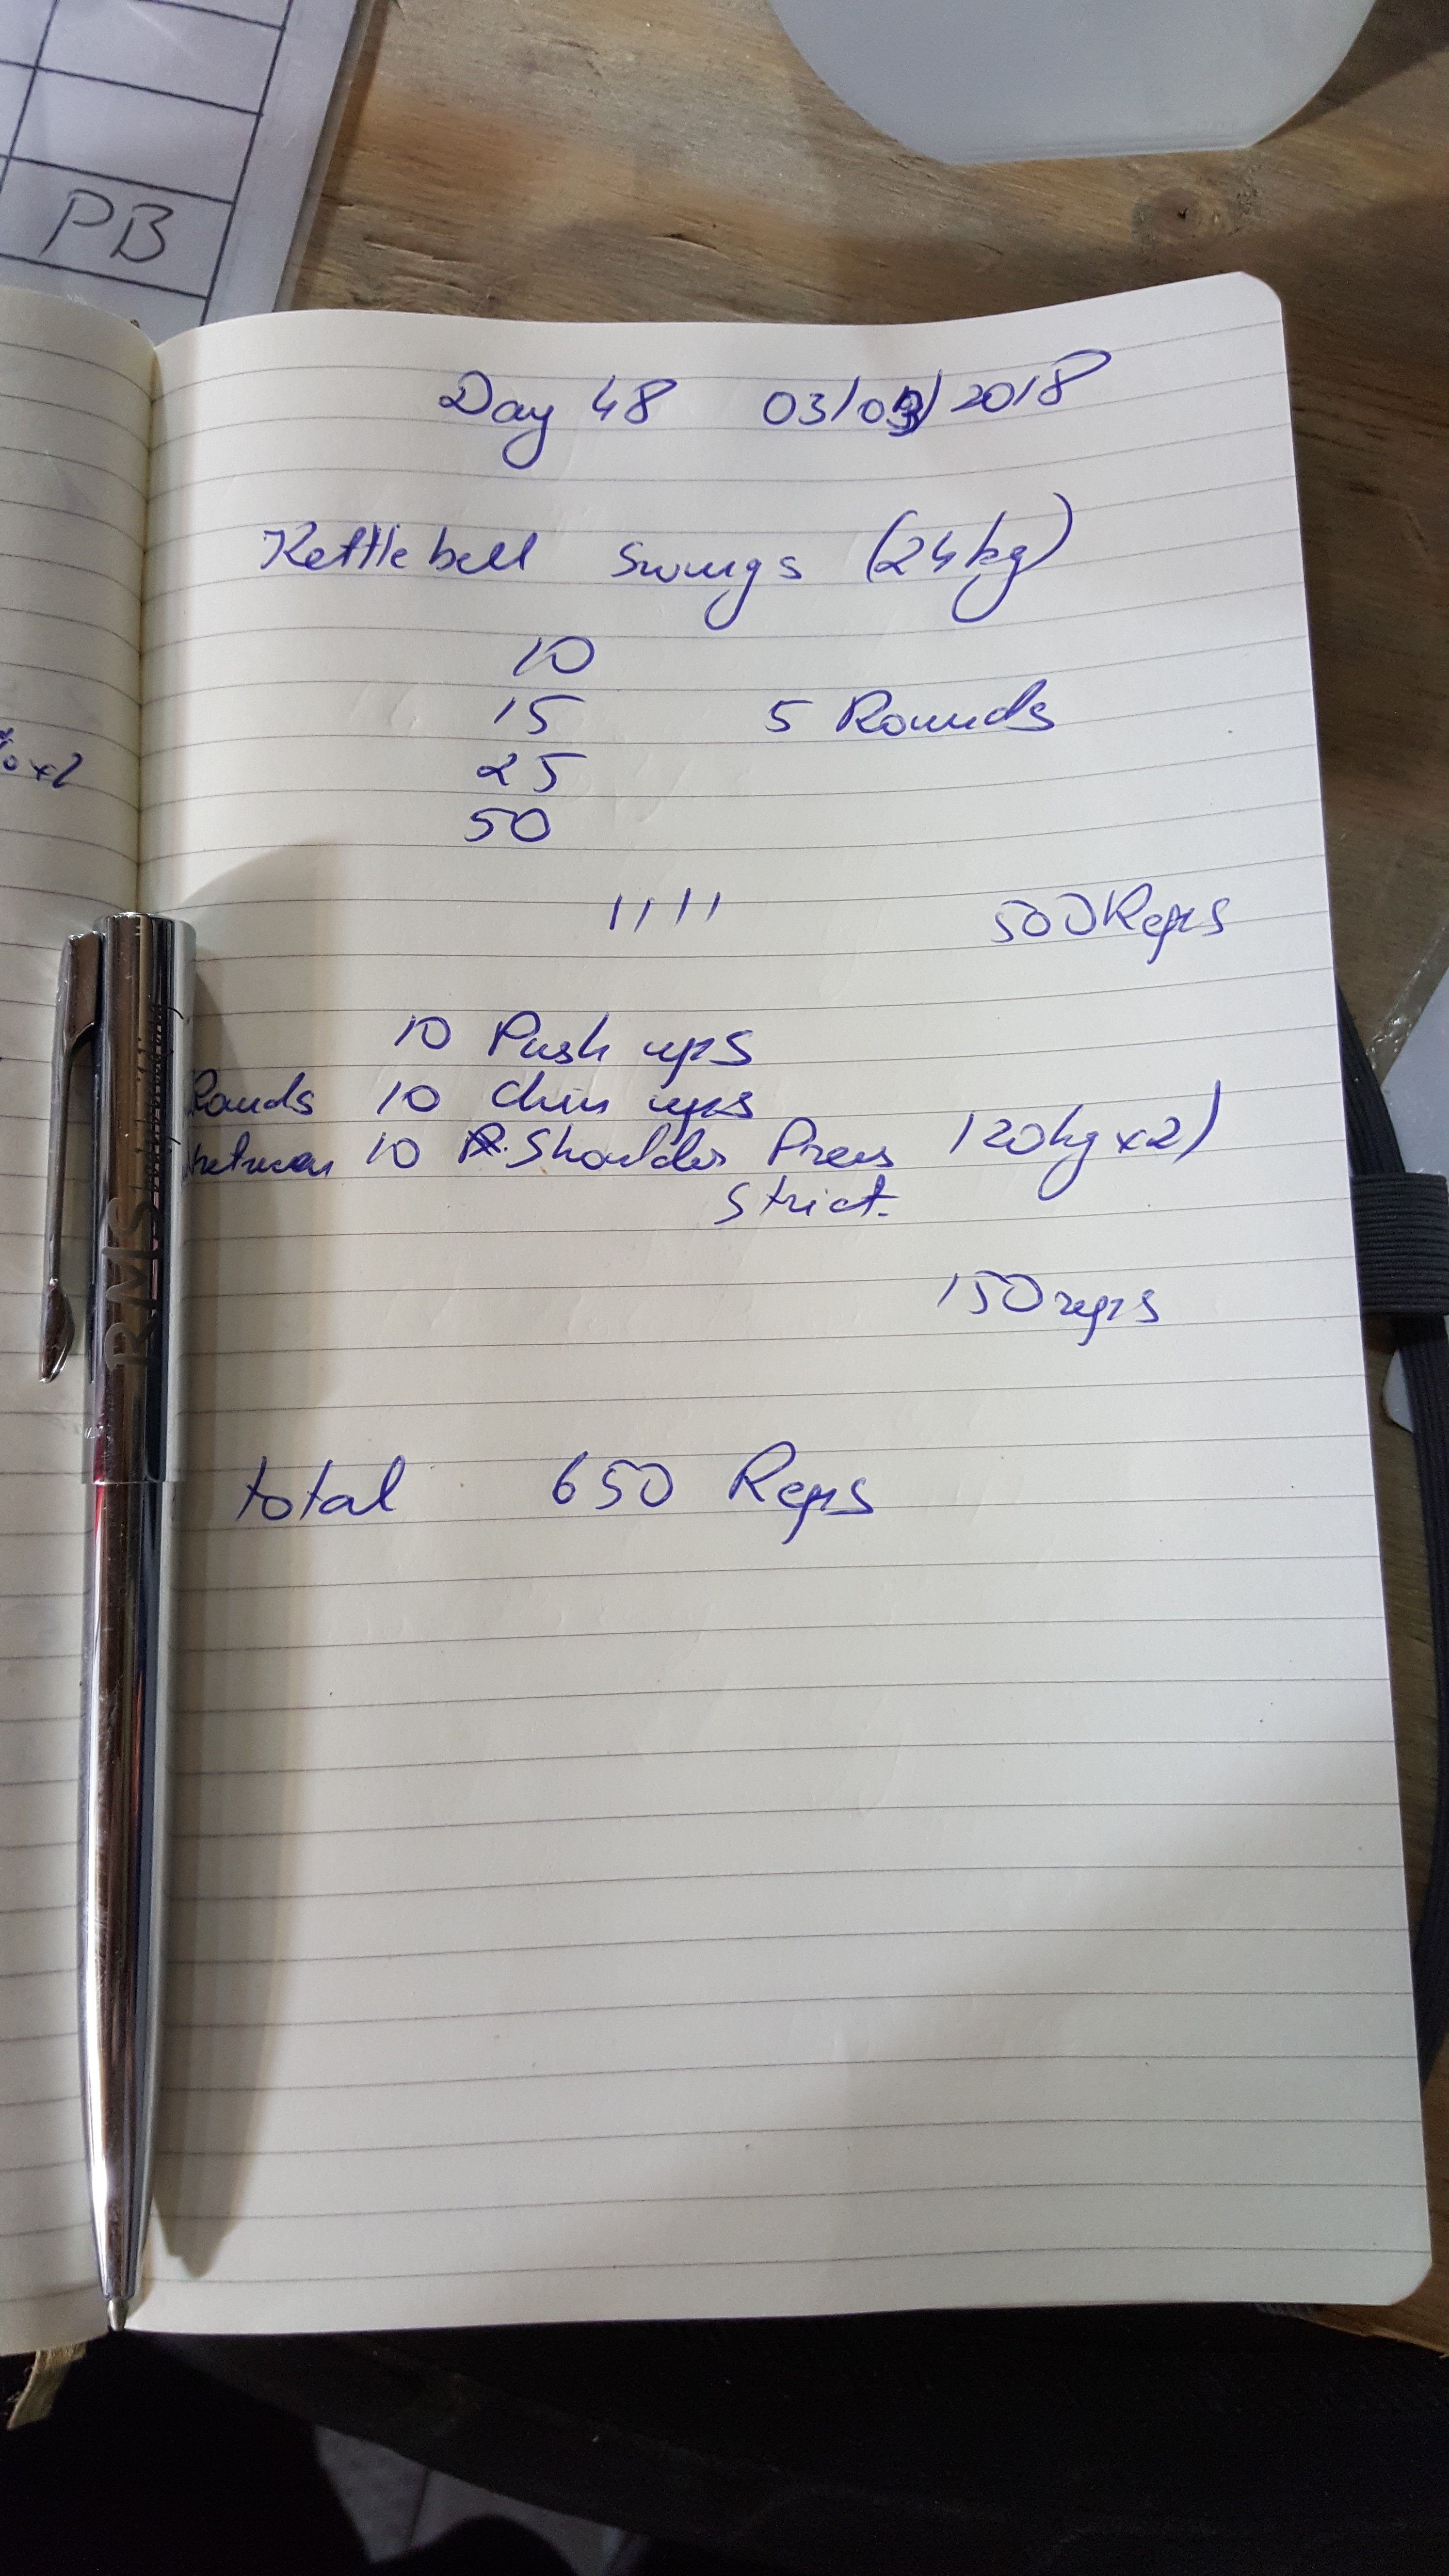 PB
Day 48 03/03/2018
Kettlebell Swings (24kg)
10
15 5 Rounds
25
50
IIII 500 Reps
10 Push ups
Rounds 10 Chin ups
between 10 Shoulder Press (20kg x2)
Strict.
150 reps
total 650 Reps
RMS